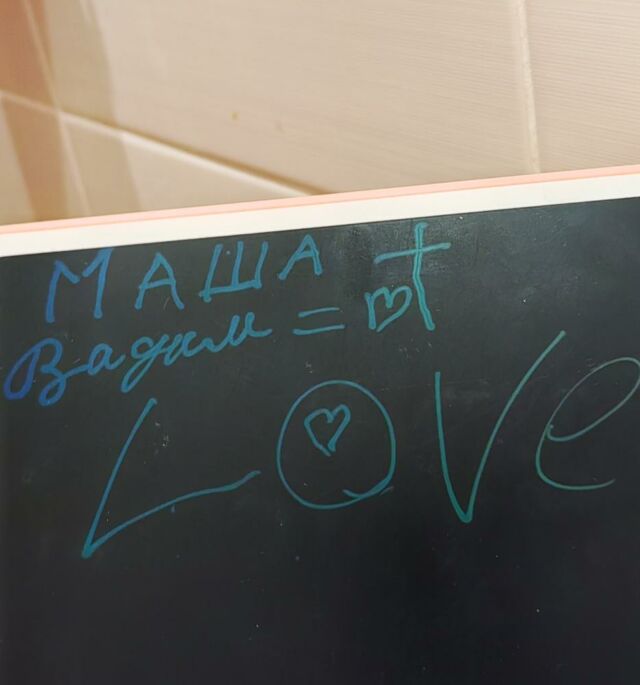 МАША +
Вадим = ♡
LOVe